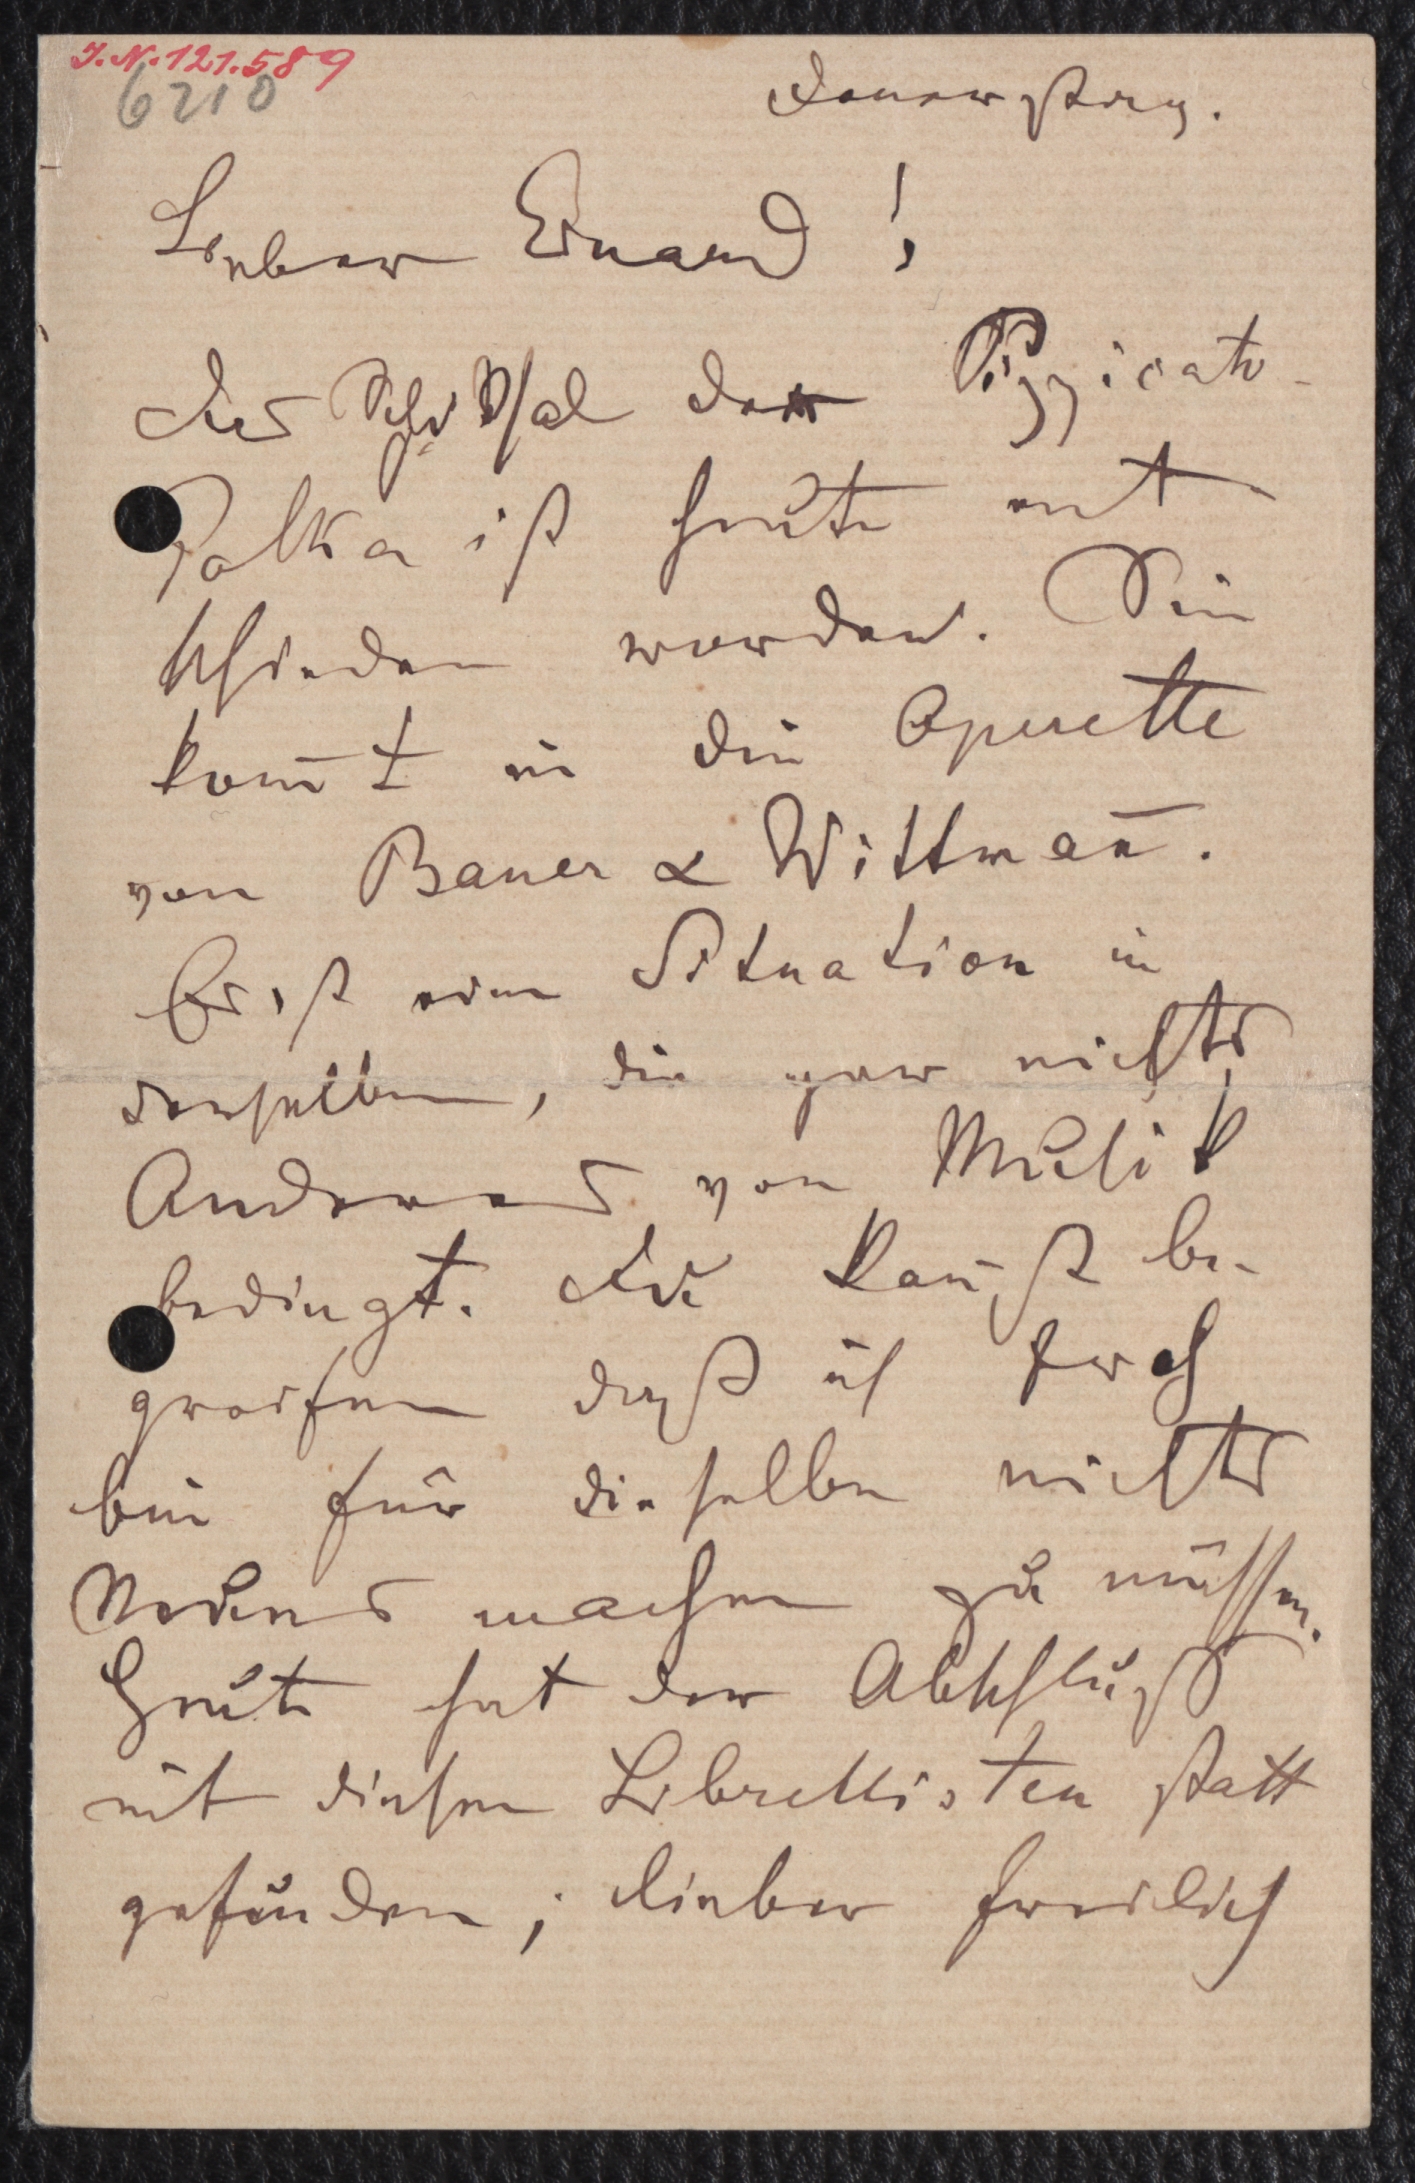 I.N. 121.589
6210
Donnerstag.
Lieber Eduard!
Das Schicksal der Pizzicato-
Polka ist heute ent
schieden worden. Sie
kom̅t in die Operette
von Bauer & Wittman̅.
Es ist eine Situation in
derselben, die gar nichts
Anderes von Musik
bedingt. Du kan̅st be-
greifen daß ich froh
bin für dieselbe nichts
Neues machen zu müssen.
Heute hat der Abschluß
mit diesen Librettisten statt
gefunden; lieber freilich